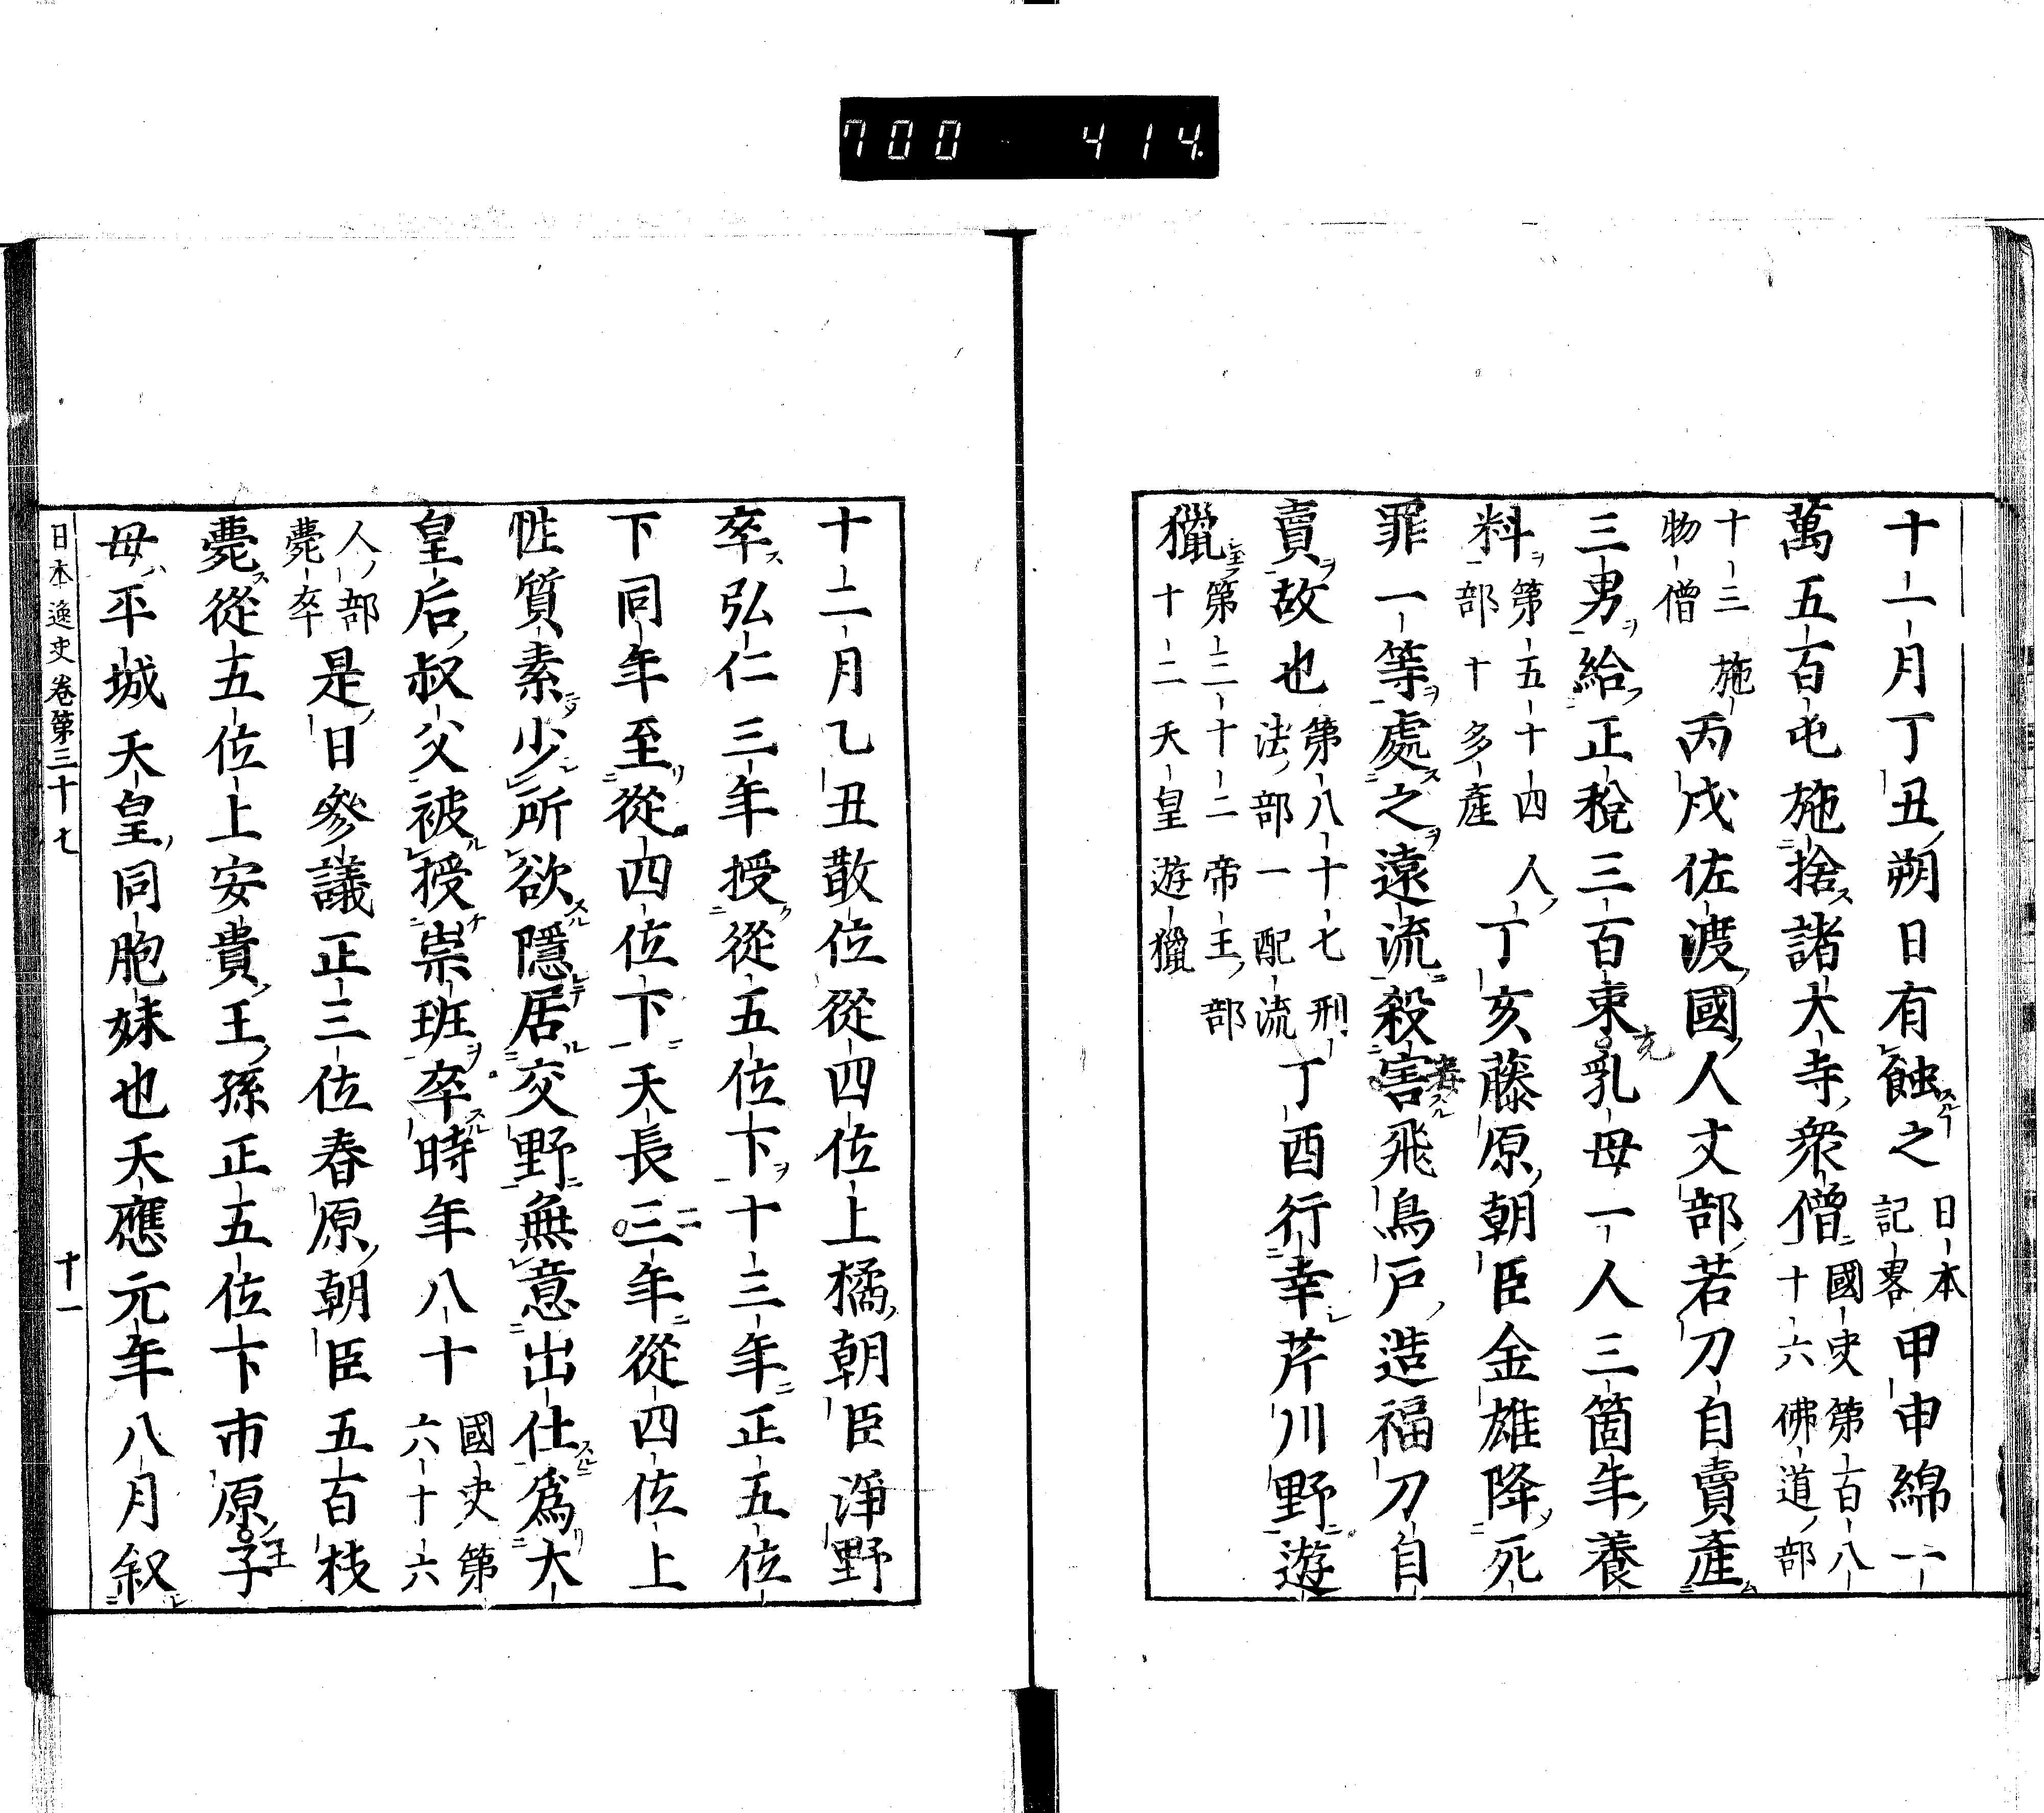 700 414
十一月丁丑朔日有蝕之日本記畧甲申綿一
萬五百屯施捨諸大寺衆僧國史第百八十六佛道部
十三施物僧丙戌佐渡國人丈部若刀自賣產
三男給正稅三百束乳母一人三箇年養
充
料第五十四人部十多產丁亥藤原朝臣金雄降死
罪一等處之遠流殺害飛鳥戸造福刀自
妻
賣故也第八十七刑法部一配流丁酉行幸芹川野遊
獵第三十二帝王部十二天皇遊獵
十二月乙丑散位從四位上橘朝臣淨野
卒弘仁三年授從五位下十三年正五位
下同年至從四位下天長三年從四位上
二
性質素少所欲隱居交野無意出仕爲大
皇后叔父被授崇班卒時年八十國史第六十六
人部薨卒是日參議正三位春原朝臣五百枝
薨從五位上安貴王孫正五位下市原子
王
母平城天皇同胞妹也天應元年八月叙
日本逸史卷第三十七
十一